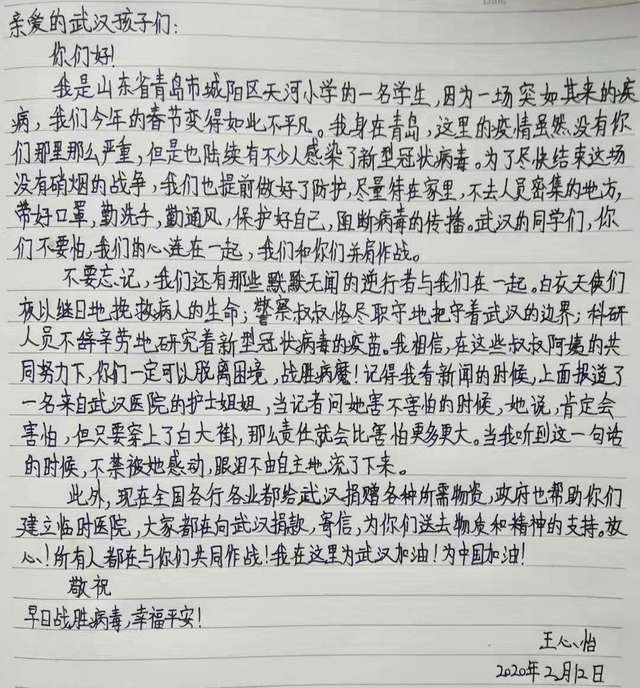 亲爱的武汉孩子们:
你们好!
我是山东省青岛市城阳区天河小学的一名学生,因为一场突如其来的疾
病,我们今年的春节变得如此不平凡。我身在青岛,这里的疫情虽然没有你
们那里那么严重,但是也陆续有不少人感染了新型冠状病毒。为了尽快结束这场
没有硝烟的战争,我们也提前做好了防护,尽量待在家里,不去人员密集的地方,
带好口罩,勤洗手,勤通风,保护好自己,阻断病毒的传播。武汉的同学们,你
们不要怕,我们的心连在一起,我们和你们并肩作战。
不要忘记,我们还有那些默默无闻的逆行者与我们在一起。白衣天使们
夜以继日地挽救病人的生命;警察叔叔恪尽职守地把守着武汉的边界;科研
人员不辞辛劳地研究着新型冠状病毒的疫苗。我相信,在这些叔叔阿姨的共
同努力下,你们一定可以脱离困境,战胜病魔!记得我看新闻的时候,上面报道了
一名来自武汉医院的护士姐姐,当记者问她害不害怕的时候,她说,肯定会
害怕,但只要穿上了白大褂,那么责任就会比害怕更多更大。当我听到这一句话
的时候,不禁被她感动,眼泪不由自主地流了下来。
此外,现在全国各行各业都给武汉捐赠各种所需物资,政府也帮助你们
建立临时医院,大家都在向武汉捐款,寄信,为你们送去物质和精神的支持。放
心!所有人都在与你们共同作战!我在这里为武汉加油!为中国加油!
敬祝
早日战胜病毒,幸福平安!
王心怡
2020年2月12日